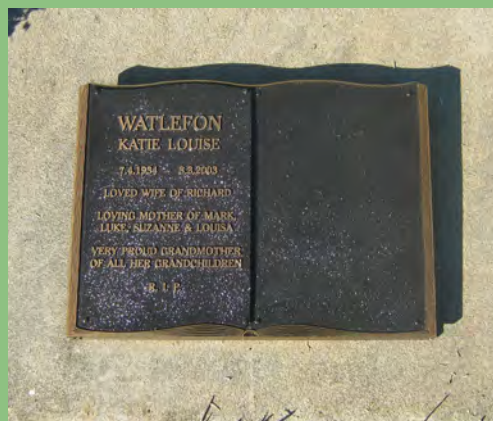 WATLEFON
KATIE LOUISE
7.4.1934 - 3.3.2003
LOVED WIFE OF RICHARD
LOVING MOTHER OF MARK,
LUKE, SUZANNE & LOUISA
VERY PROUD GRANDMOTHER
OF ALL HER GRANDCHILDREN
R. I. P.